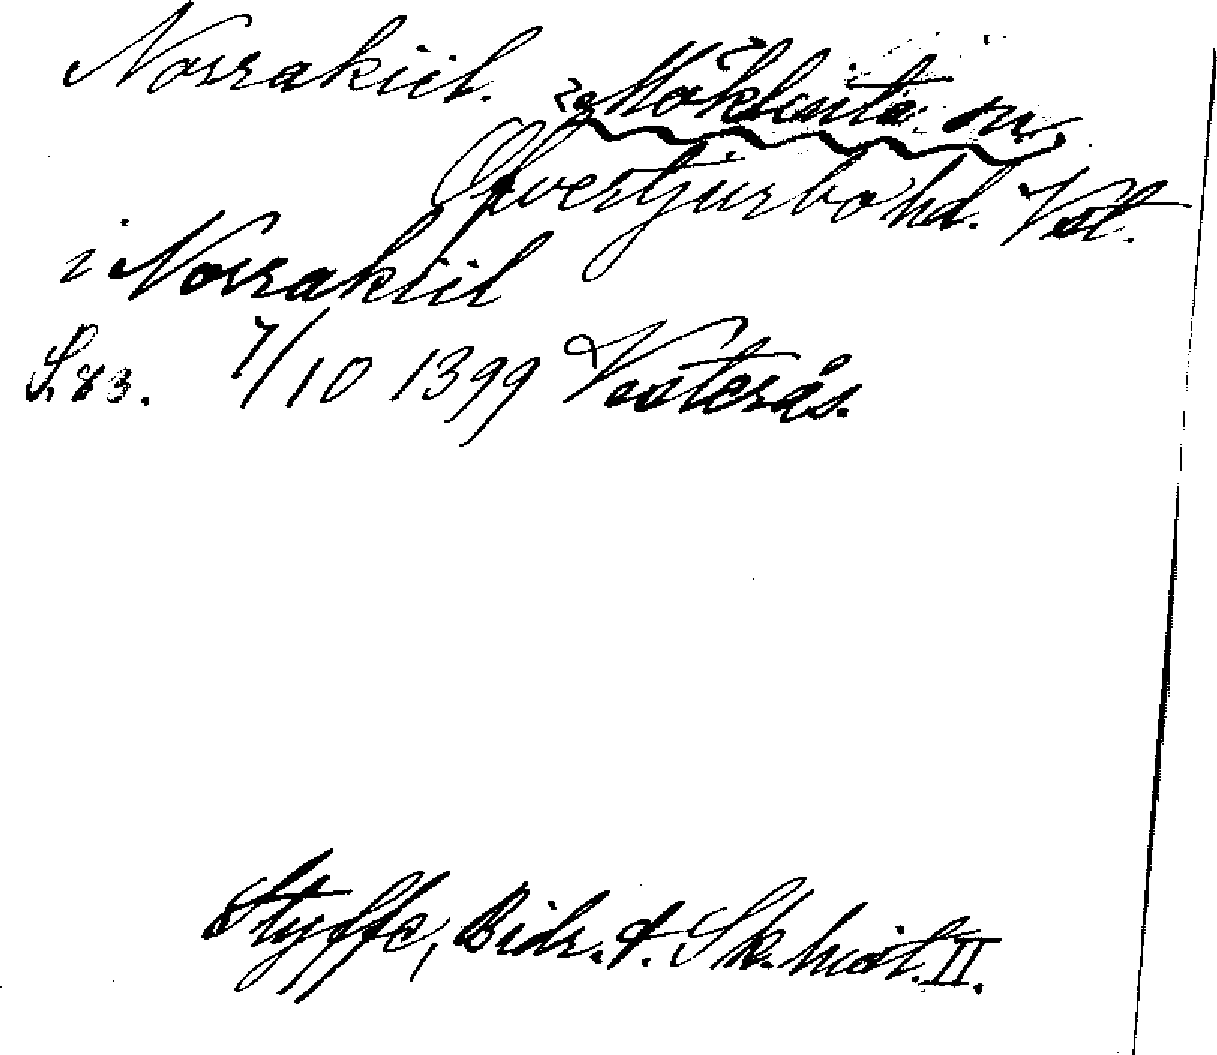 Norrakiil. ? Möklinta sn,
Öfvertjurbo hd. Vstl.
i Norrakiil
S. 83. 7/10 1399 Vesterås.
Styffe, Bidr. t. Sk. hist. II.